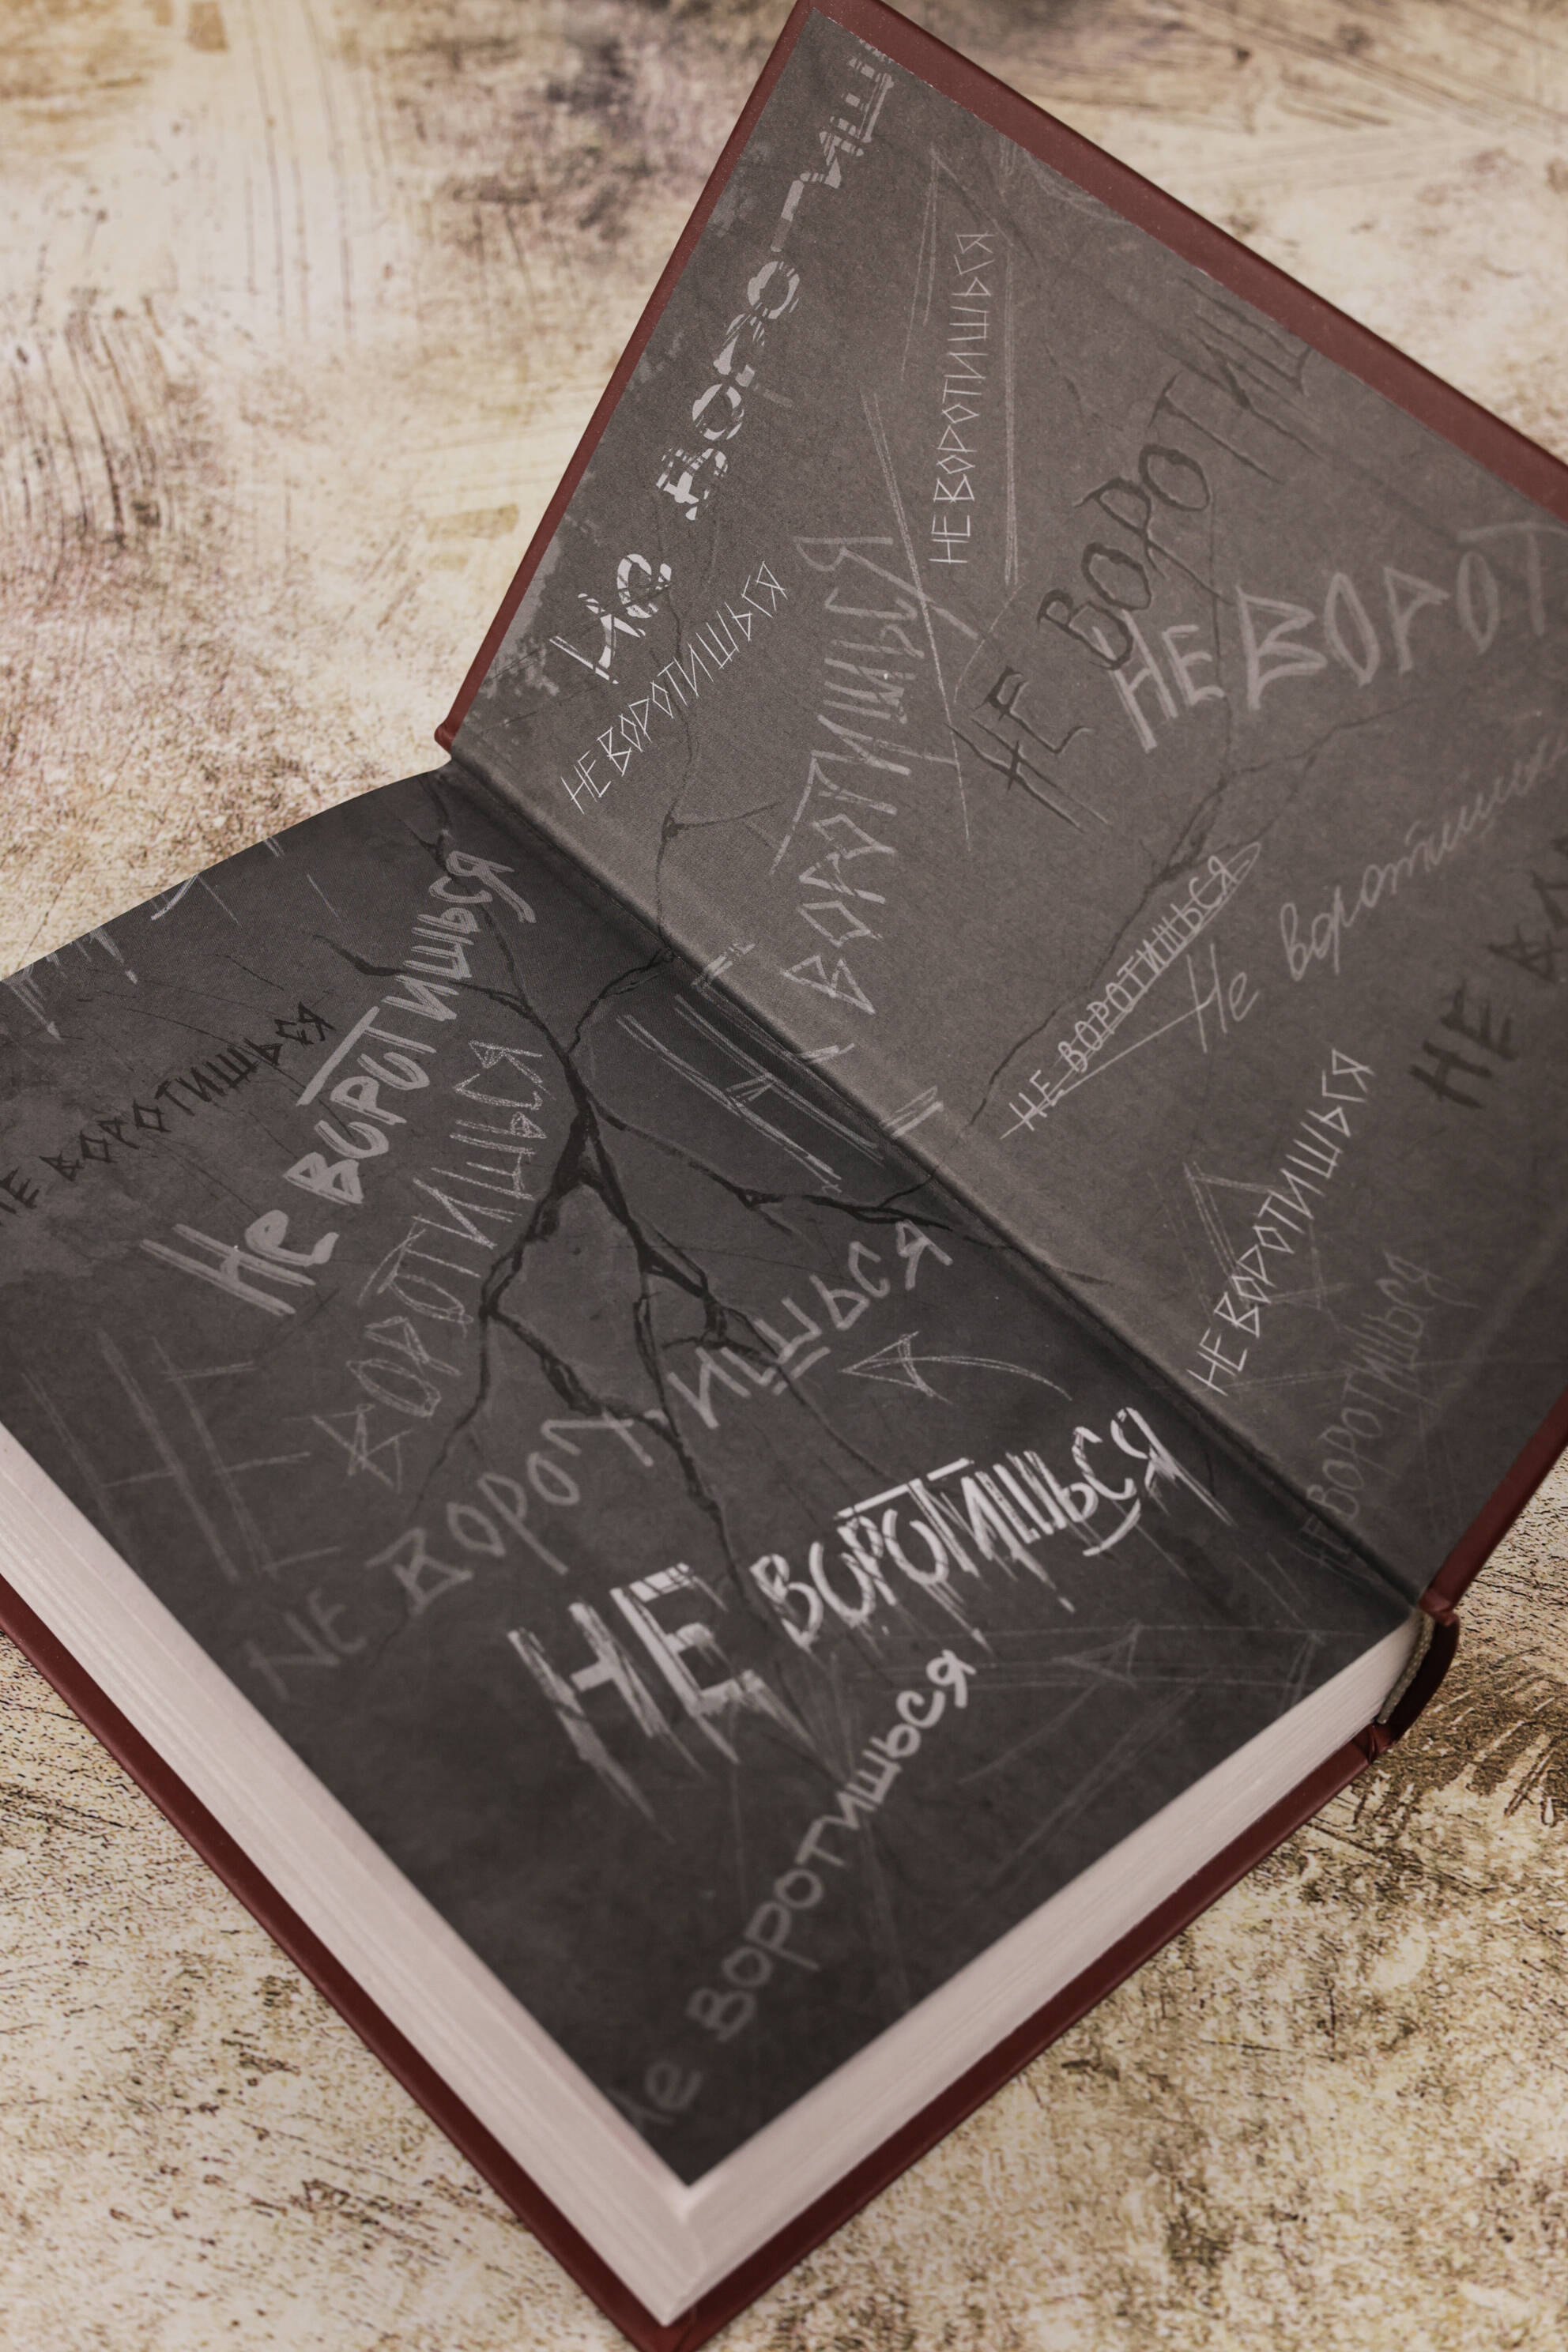 Не ВОРОТИШ
НЕ ВОРОТИШЬСЯ
НЕ ВОРОТИШЬСЯ
ВОРОТИШЬСЯ
НЕ ВОРОТИШ
НЕ ВОРОТ
Не воротишь
НЕ ВОРОТИШЬСЯ
НЕ ВО
НЕ ВОРОТИШЬСЯ
НЕ ВОРОТИШЬСЯ
НЕ
НЕ ВОРОТИШЬСЯ
Не воротишься
ВОРОТИШЬСЯ
НЕ
НЕ ВОРОТИШЬСЯ
НЕ ВОРОТИШЬСЯ
Не воротишься